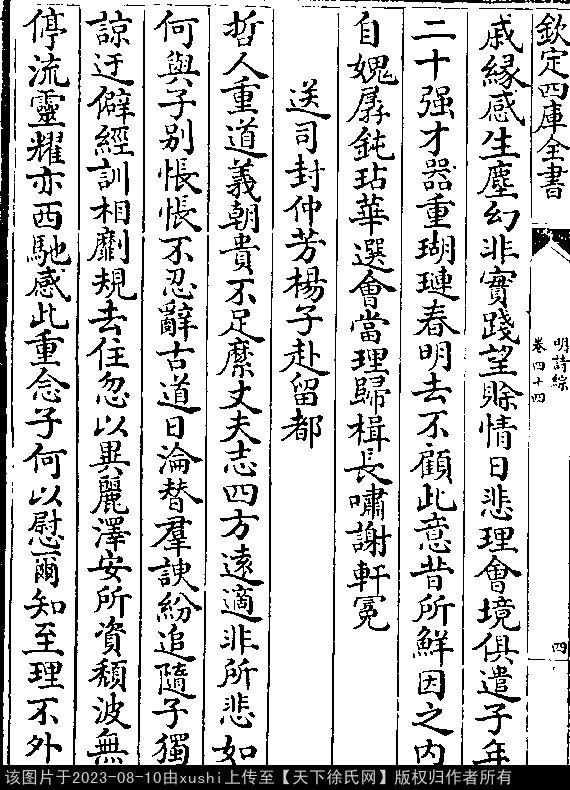 欽定四庫全書
明詩綜
卷四十四
四
戚緣感生塵幻非實踐望賒情日悲理會境俱遣子年
二十强才器重瑚璉春明去不顧此意昔所鮮因之内
自媿孱鈍玷華選會當理歸楫長嘯謝軒冕
送司封仲芳楊子赴留都
哲人重道義朝貴不足縻丈夫志四方遠適非所悲如
何與子别悵悵不忍辭古道日淪替羣諛紛追隨子獨
諒迂僻經訓相劘規去住忽以異麗澤安所資頹波無
停流靈耀亦西馳感此重念子何以慰爾知至理不外
该图片于2023-08-10由xushi上传至【天下徐氏网】版权归作者所有